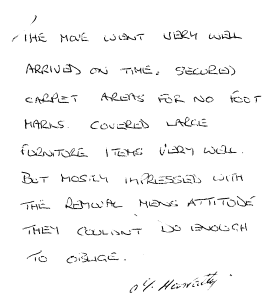 THE MOVE WENT VERY WELL
ARRIVED ON TIME, SECURED
CARPET AREAS FOR NO FOOT
MARKS. COVERED LARGE
FURNITURE ITEMS VERY WELL.
BUT MOSTLY IMPRESSED WITH
THE REMOVAL MENS ATTITUDE
THEY COULDNT DO ENOUGH
TO OBLIGE.